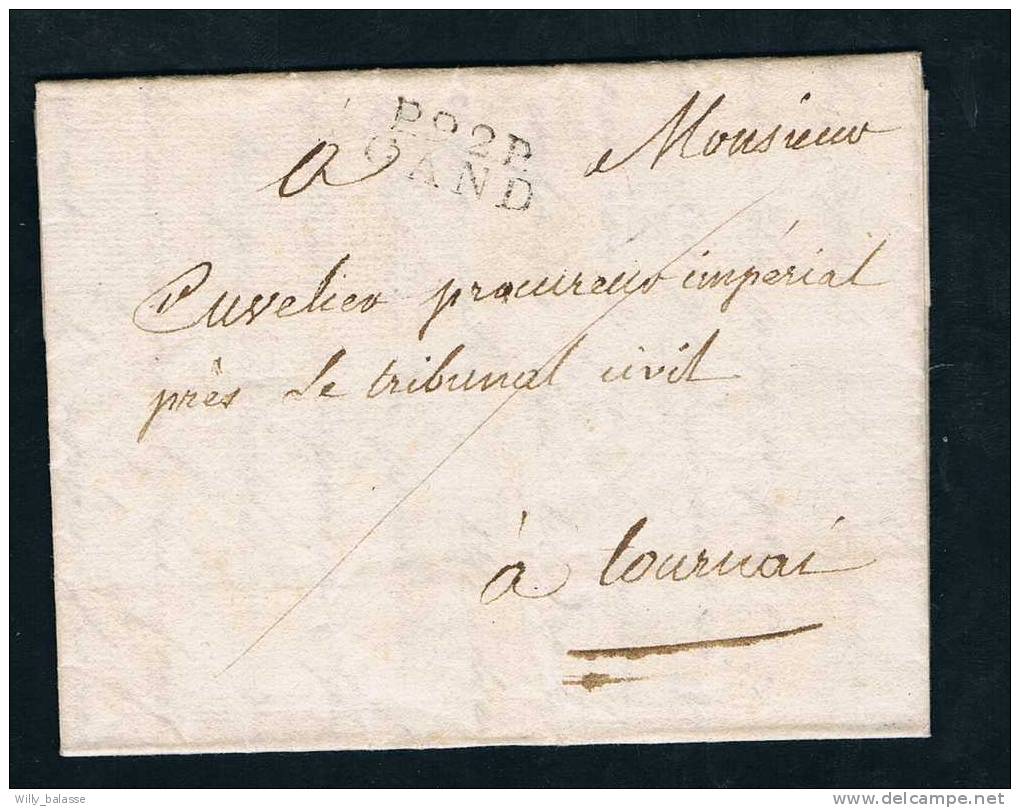 P.92P.
GAND
à Monsieur
Cuvelier procureur impérial
près le tribunal civil
à tournai
Willy_balasse
delcampe.net